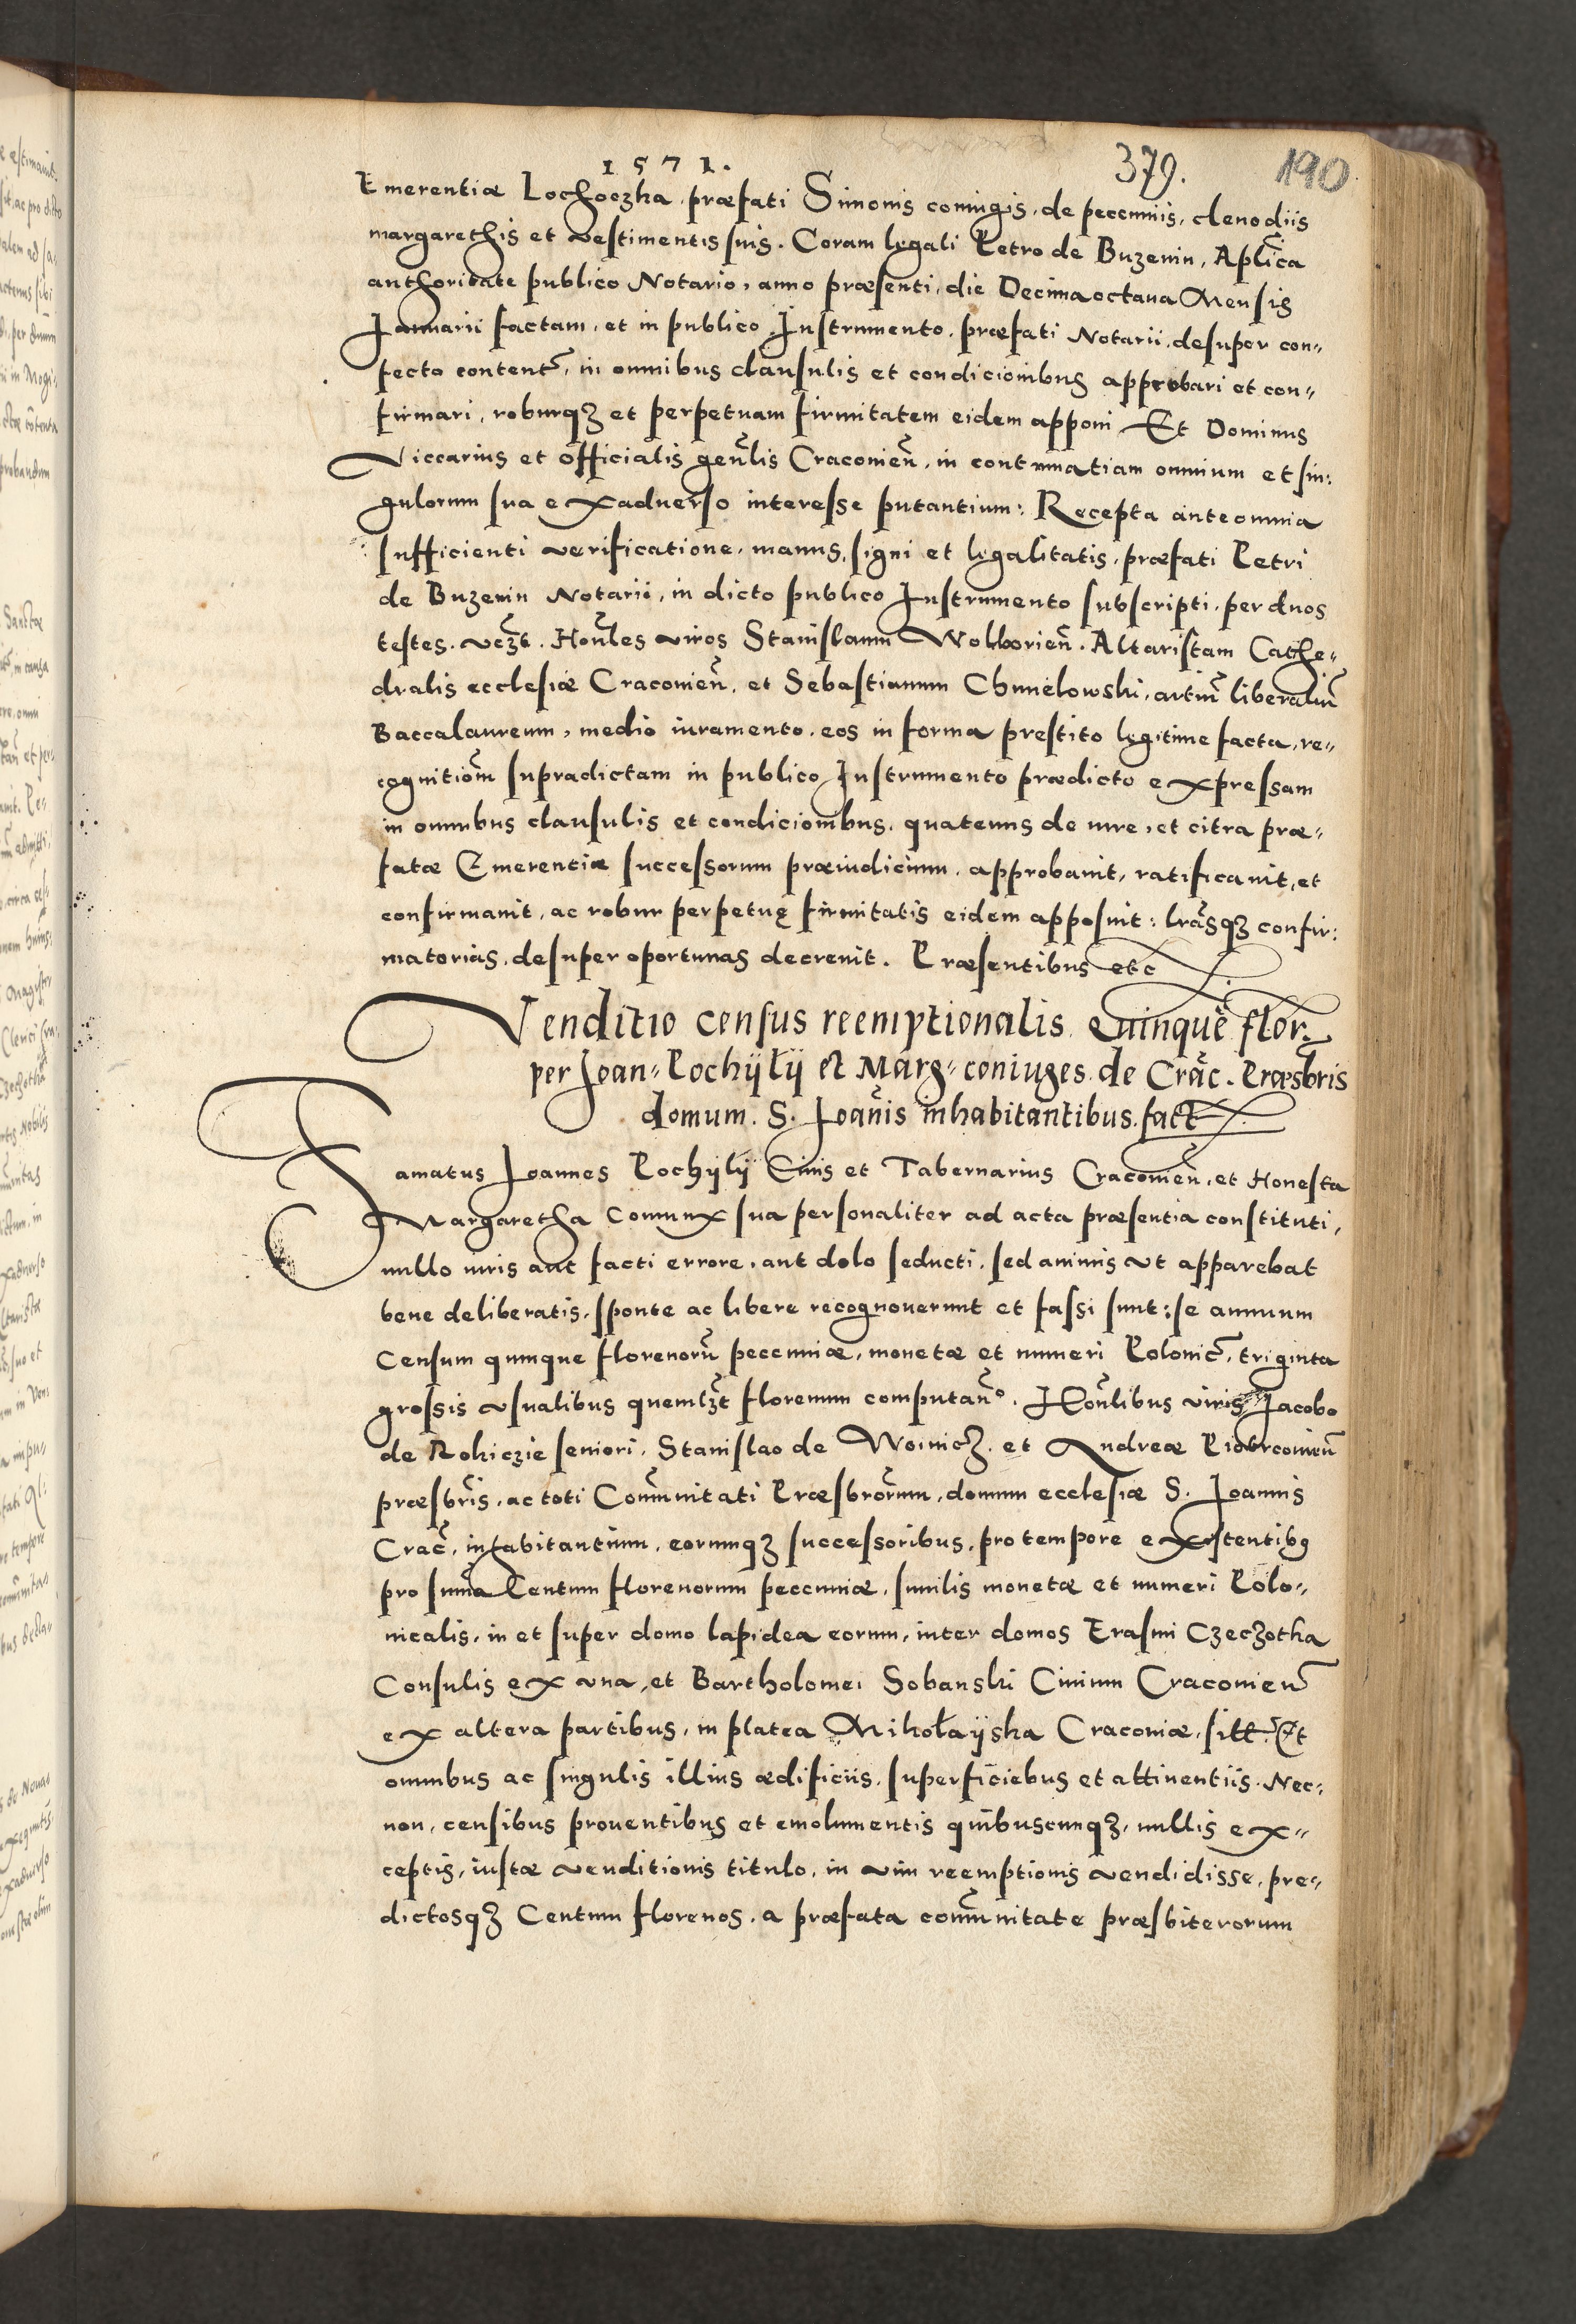 1571.
379.
190
Emerentiæ Lochoczka, præfati Simonis coniugis, de pecuniis, clenodiis
margarethis et vestimentis suis. Coram legali Petro de Buzenin, Aplica
authoritate publico Notario, anno præsenti, die Decimaoctaua Mensis
Januarii factam, et in publico Instrumento, præfati Notarii, desuper con„
fecto content, in omnibus clausulis et condicionibus approbari et con„
firmari, roburqȝ et perpetuam firmitatem eidem apponi Et Dominus
Viccarius et officialis genlis Craconien, in contumatiam omnium et sin:
gulorum sua exaduerso interesse putantium: Recepta ante omnia
sufficienti verificatione, manus, signi et legalitatis, præfati Petri
de Buzenin Notarii, in dicto publico Instrumento subscripti, per duos
testes, vczt. Honles viros Stanislaum Wolborien. Altaristam Cathe„
dralis ecclesiæ Craconien, et Sebastianum Chmielowski, artiu liberaliu
Baccalaureum, medio iuramento, eos in forma prestito legitime facta, re„
cognitiom supradictam in publico Instrumento prædicto expressam
in omnibus clausulis et condicionibus, quatenus de iure, et citra præ„
fatæ Emerentiæ successorum præiudicium, approbauit, ratificauit, et
confirmauit, ac robur perpetuę firmitatis eidem apposuit: lrasqȝ confir:
matorias, desuper oportunas decreuit. Præsentibus etc
Venditio census reemptionalis Quinque flor.
per Joan„ Pochyły et Marg„ coniuges de Crac. Præsbris
domum. S. Joanis inhabitantibus. fact.
Famatus Joannes Pochyly Ciuis et Tabernarius Craconien, et Honesta
Margaretha coniunx sua personaliter ad acta præsentia constituti,
nullo iuris aut facti errore, aut dolo seducti, sed animis vt apparebat
bene deliberatis, sponte ac libere recognouerunt et fassi sunt: se annuum
Censum quinque florenoru pecuniæ, monetæ et numeri Polonic, triginta
grossis vsualibus quemlȝt florenum computan°. Honlibus viris Jacobo
de Rokiczie seniori, Stanislao de Woinicȝ, et Andreæ Piotrconien
præsbris, ac toti Comunitati Præsbrorum, domum ecclesiæ S. Joannis
Crac, inhabitantium, eorumqȝ successoribus, pro tempore existentibus
pro suma Centum florenorum pecuniæ, similis monetæ et numeri Polo„
nicalis, in et super domo lapidea eorum, inter domos Erasmi Czeczotha
Consulis ex vna, et Bartholomei Sobanski Ciuium Craconien
ex altera partibus, in platea Mikołayska Craconiæ, sitt. Et
omnibus ac singulis illius ædificiis, superficiebus et attinentiis. Nec:
non, censibus prouentibus et emolumentis quibuscunqȝ, nullis ex„
ceptis, iustæ venditionis titulo, in vim reemptionis vendidisse, pre„
dictosqȝ Centum florenos, a præfata comunitate præsbiterorum